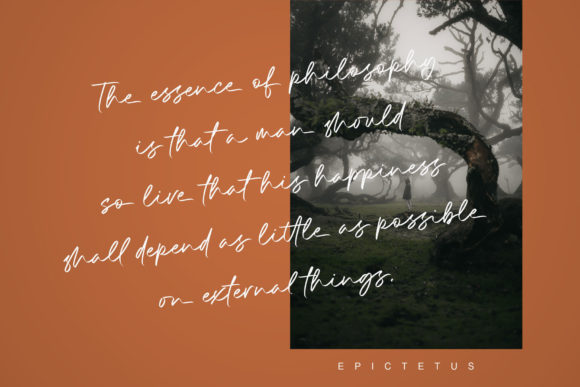 The essence of philosophy
is that a man should
so live that his happiness
shall depend as little as possible
on external things.
EPICTETUS